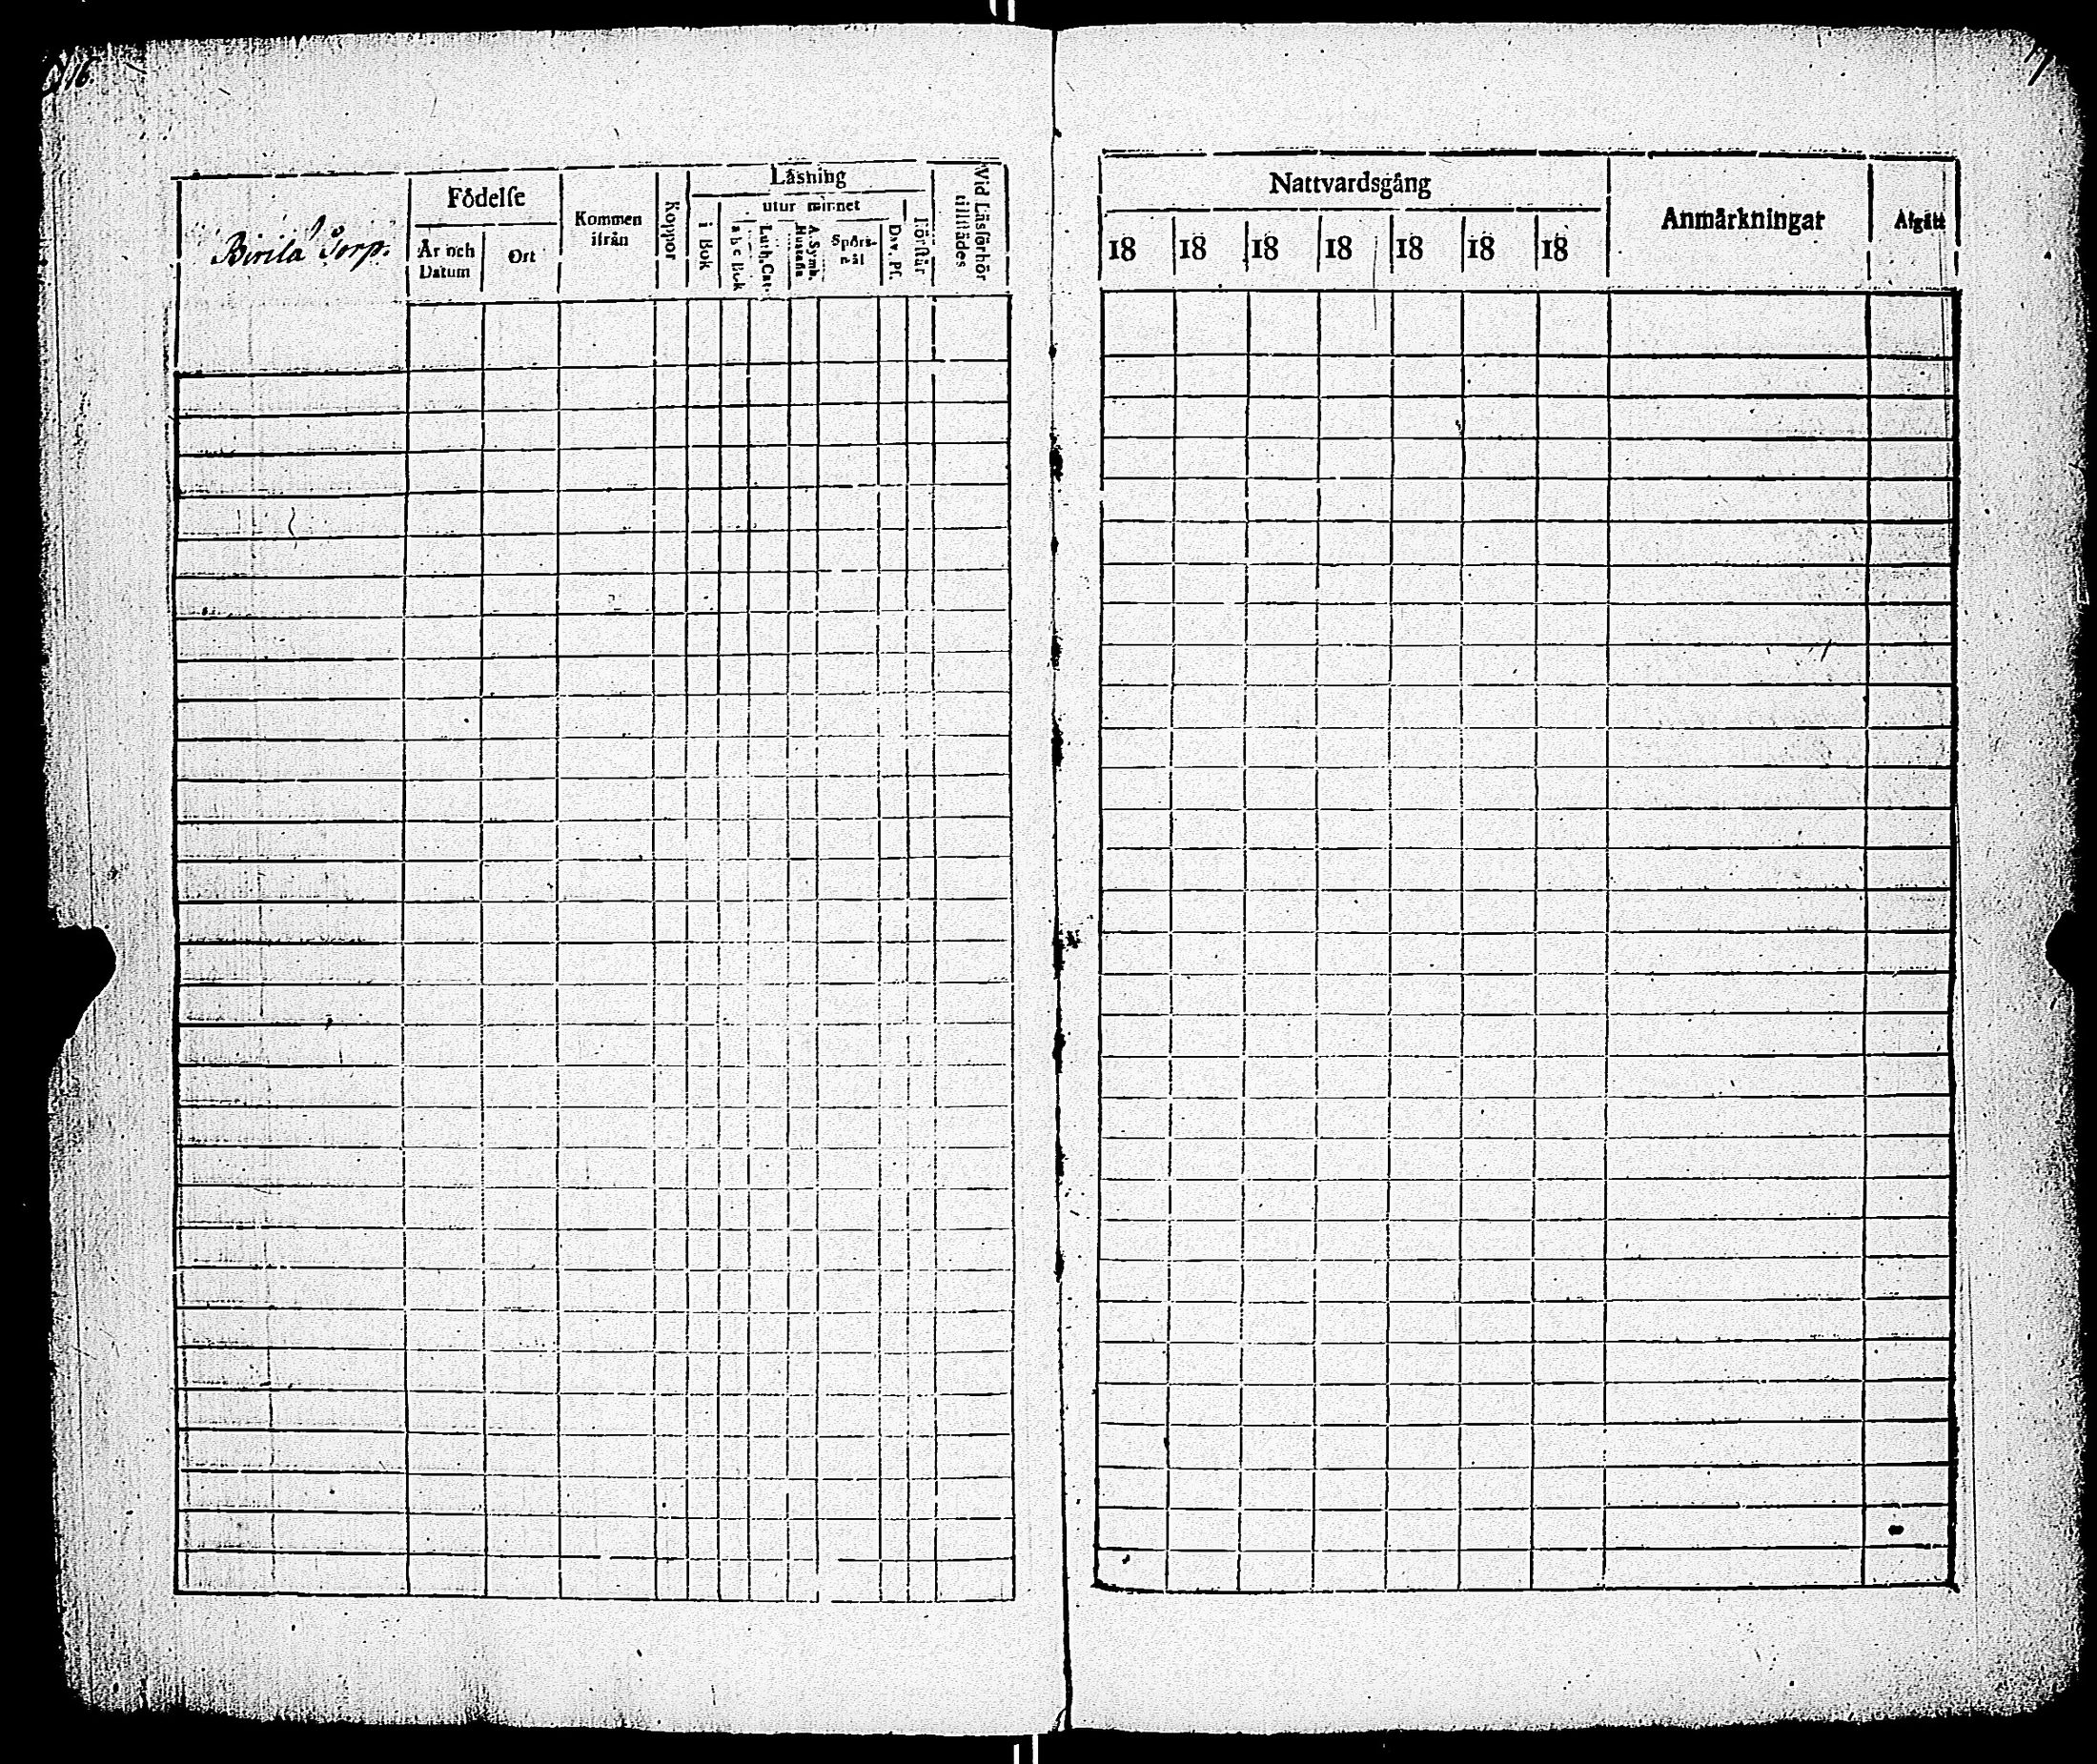 Birila Torp.
Födelſe
År och Datum
Ort
Kommen ifrån
Koppor
Läsning
i Bok
utur minnet
a b c Bok
Luth. Cat.
A. Symb. Hustafla
Spörsmål
Dav. Pſ.
Förſtår
Vid Läsförhör tillſtädes
Nattvardsgång
18 18 18 18 18 18 18
Anmärkningar
Afgått